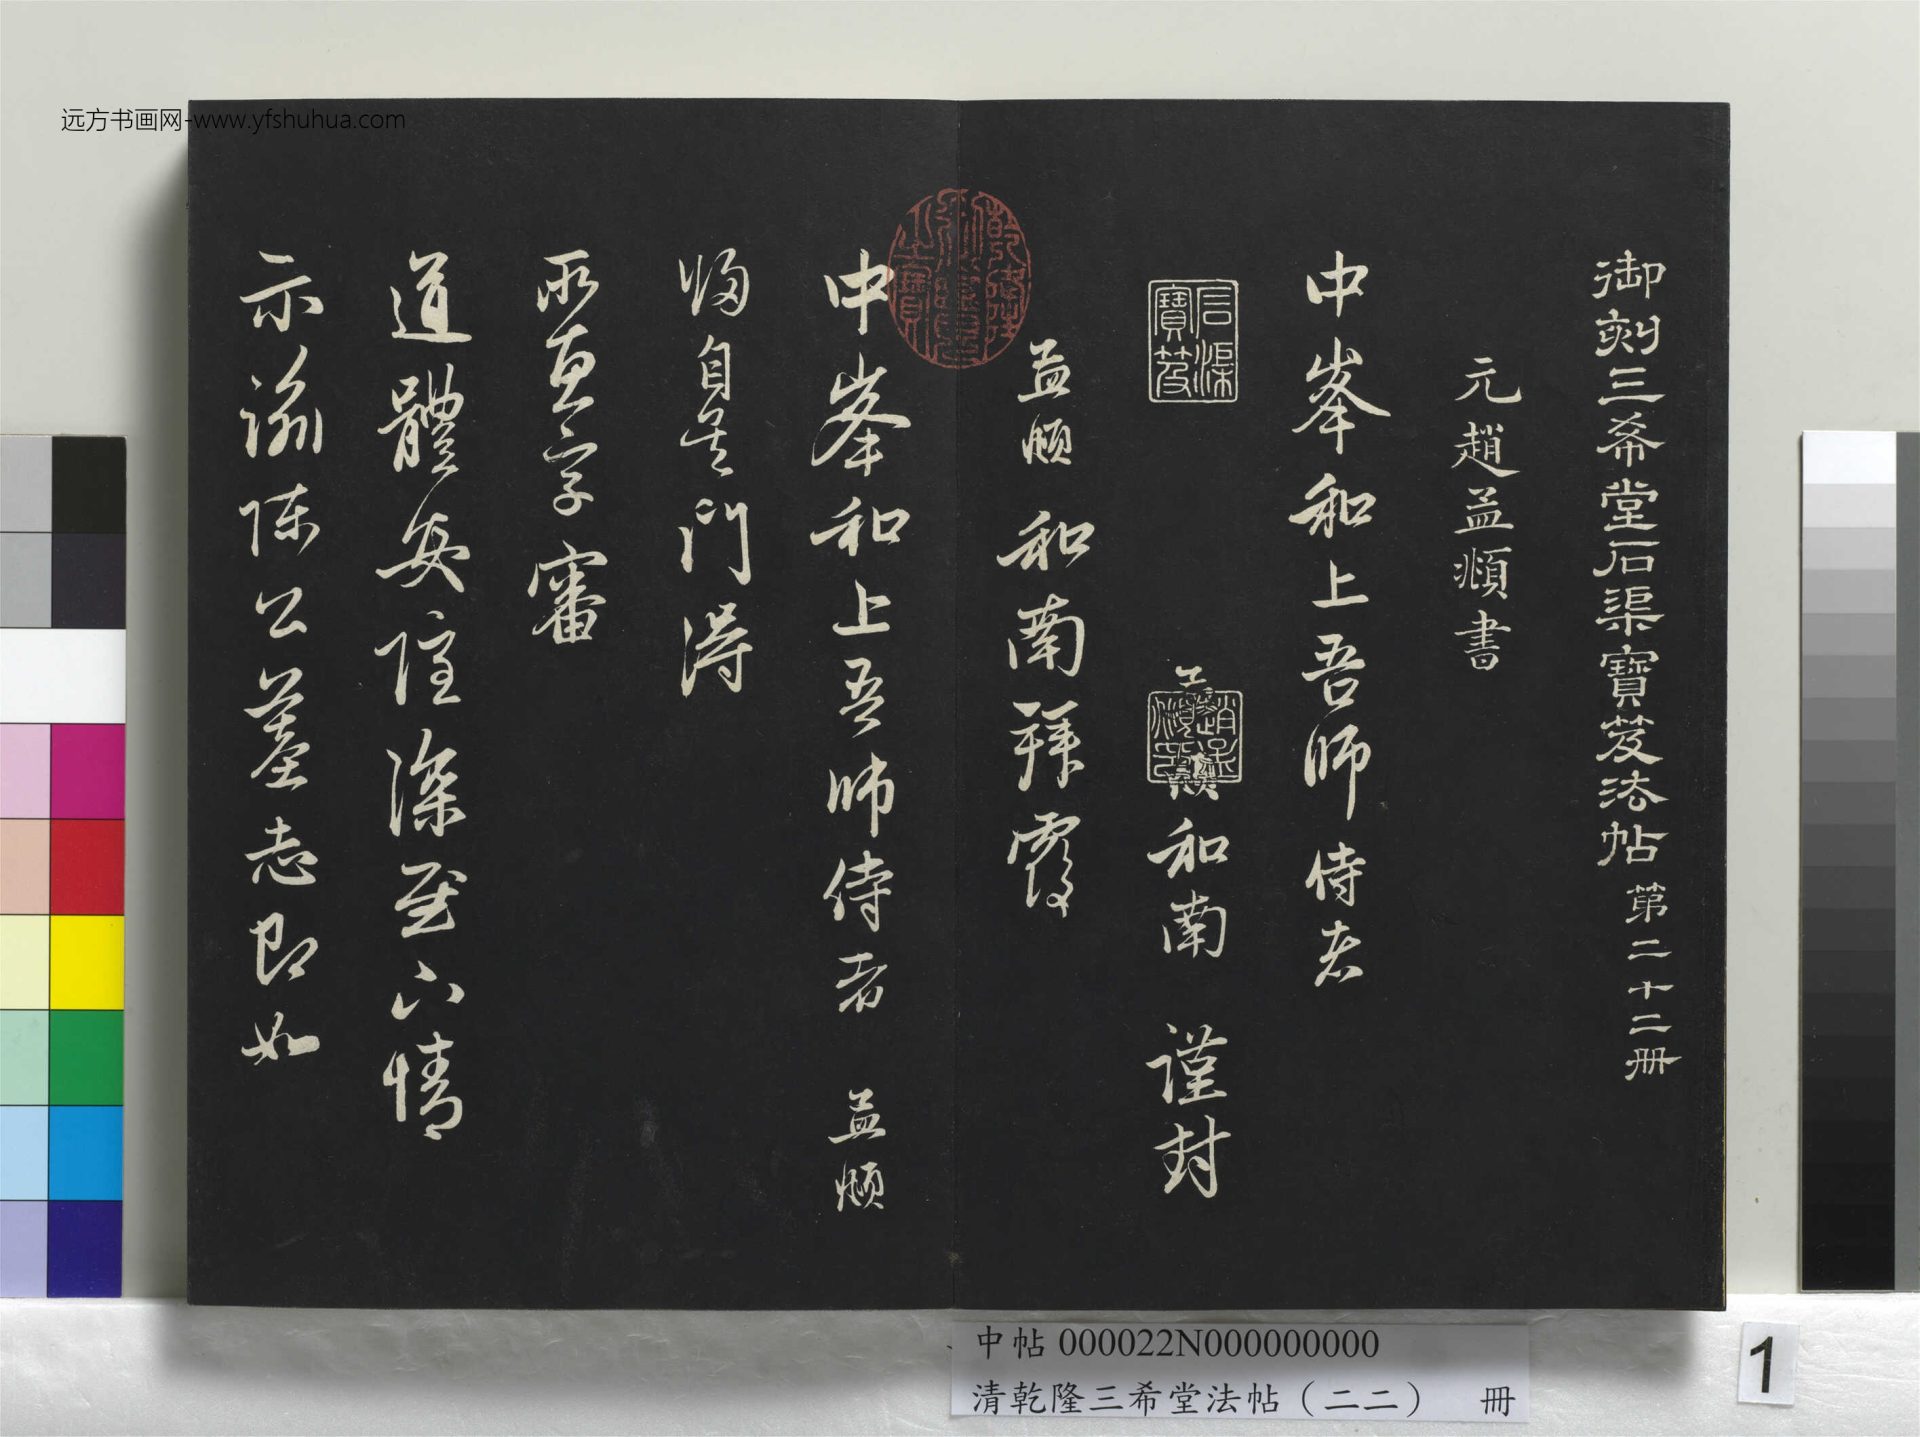 远方书画网-www.yfshuhua.com
御刻三希堂石渠寶笈法帖 第二十二冊
元趙孟頫書
中峯和上吾師侍者
石渠寶笈
趙孟頫印
孟頫 和南 謹封
孟頫 和南拜覆
乾隆御覽之寶
中峯和上吾師侍者 孟頫
歸自吳門得
所惠字審
道體安隱深慰下情
示諭陳公墓志即如
中帖 000022N000000000
清乾隆三希堂法帖（二二） 冊
1